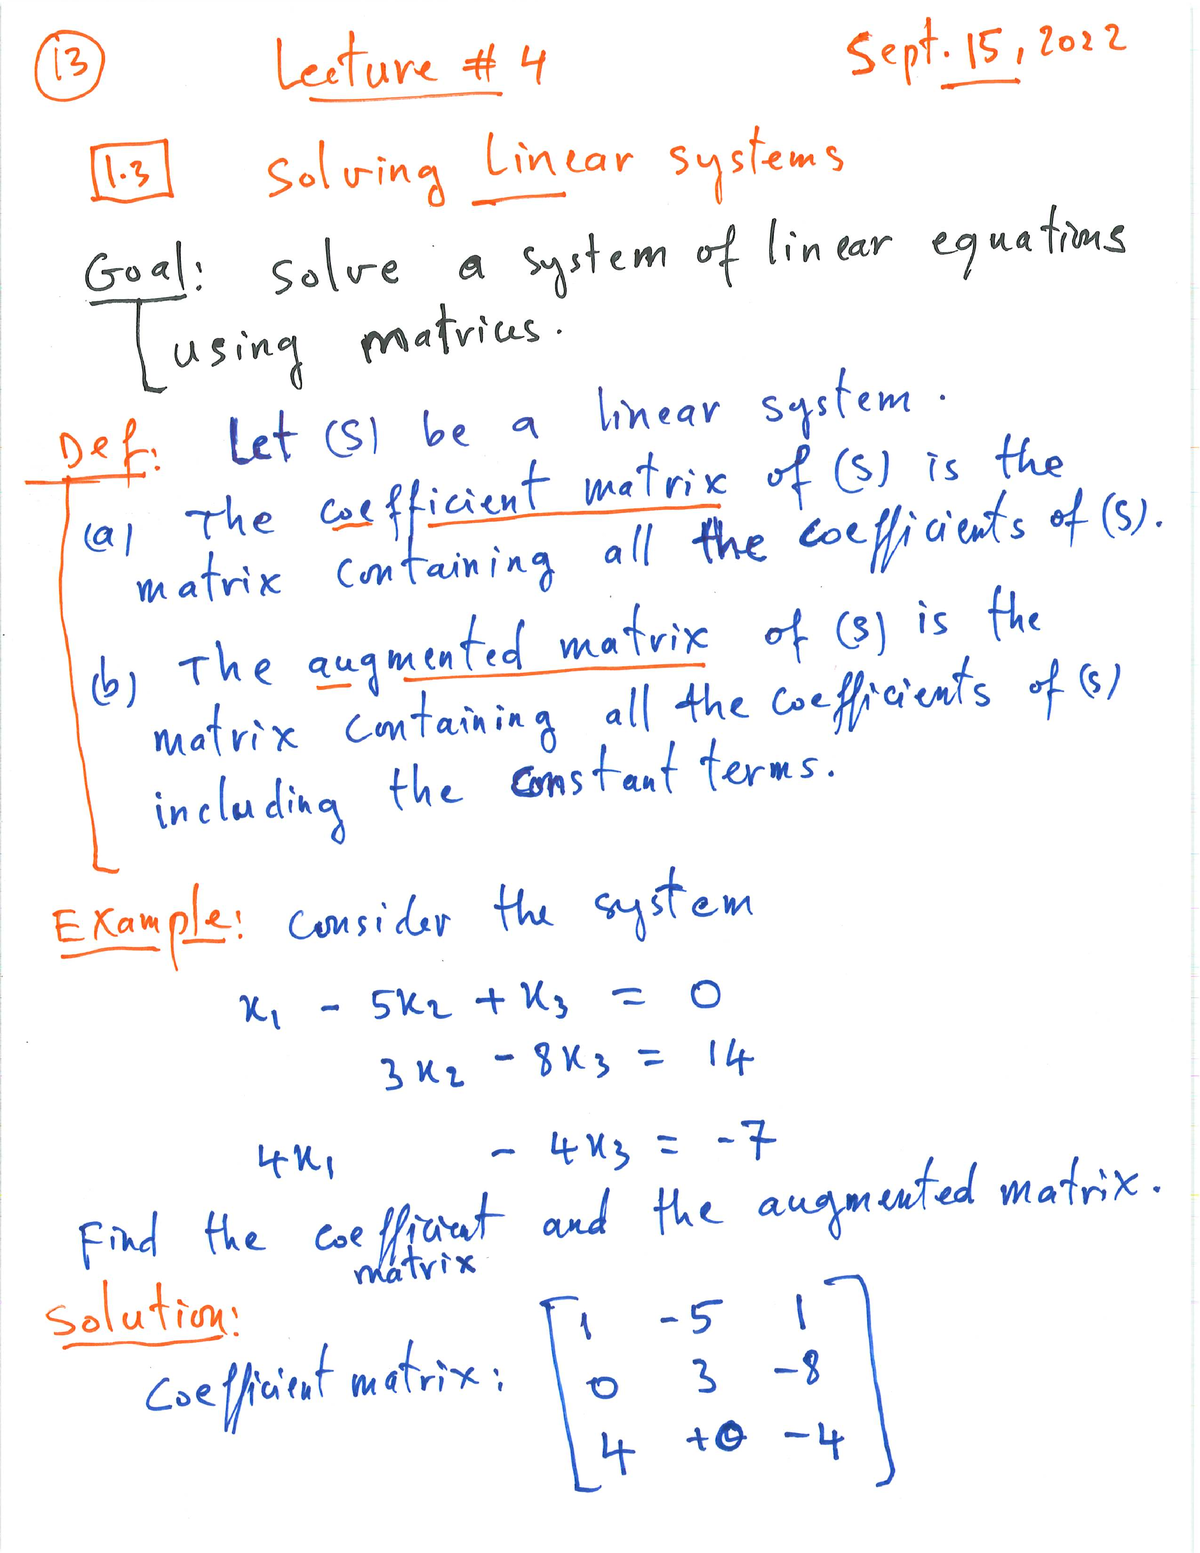 13 Lecture # 4 Sept. 15, 2022
1.3 Solving Linear systems
Goal: Solve a system of linear equations
using matrices.
Def: Let (S) be a linear system.
(a) The coefficient matrix of (S) is the
matrix containing all the coefficients of (S).
(b) The augmented matrix of (S) is the
matrix containing all the coefficients of (S)
including the constant terms.
Example: Consider the system
x₁ - 5x₂ + x₃ = 0
3x₂ - 8x₃ = 14
4x₁ - 4x₃ = -7
Find the coefficient and the augmented matrix.
matrix
Solution:
1 -5 1
Coefficient matrix: 0 3 -8
4 +0 -4